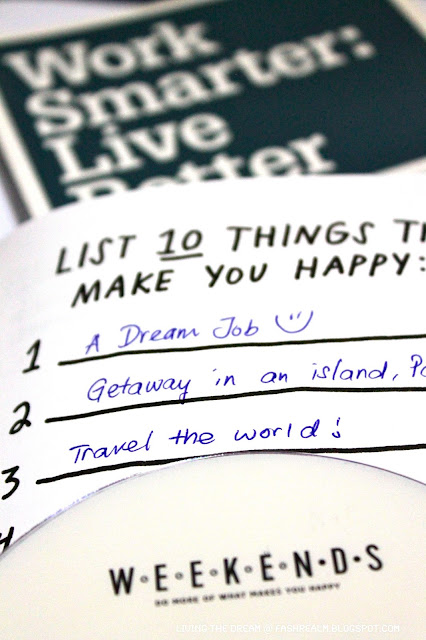 Work
Smarter:
Live
Better
LIST 10 THINGS
MAKE YOU HAPPY:
1 A Dream Job
2 Getaway in an island,
3 Travel the world!
W·E·E·K·E·N·D·S
DO MORE OF WHAT MAKES YOU HAPPY
LIVING THE DREAM // FASHREALM.BLOGSPOT.COM